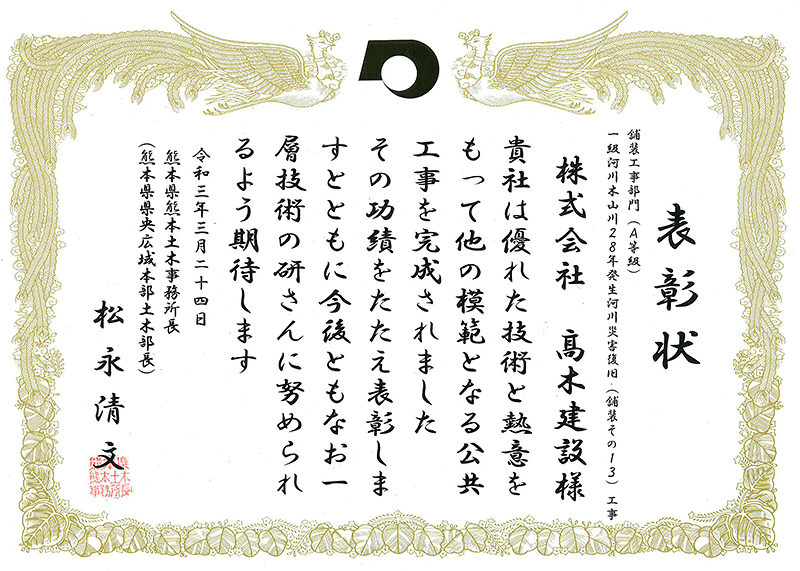 表彰状
舗装工事部門（A等級）
一級河川木山川28年発生河川災害復旧（舗装その13）工事
株式会社　髙木建設様
貴社は優れた技術と熱意を
もって他の模範となる公共
工事を完成されました
その功績をたたえ表彰しま
すとともに今後ともなお一
層技術の研さんに努められ
るよう期待します
令和三年三月二十四日
熊本県熊本土木事務所長
（熊本県県央広域本部土木部長）
松永清文